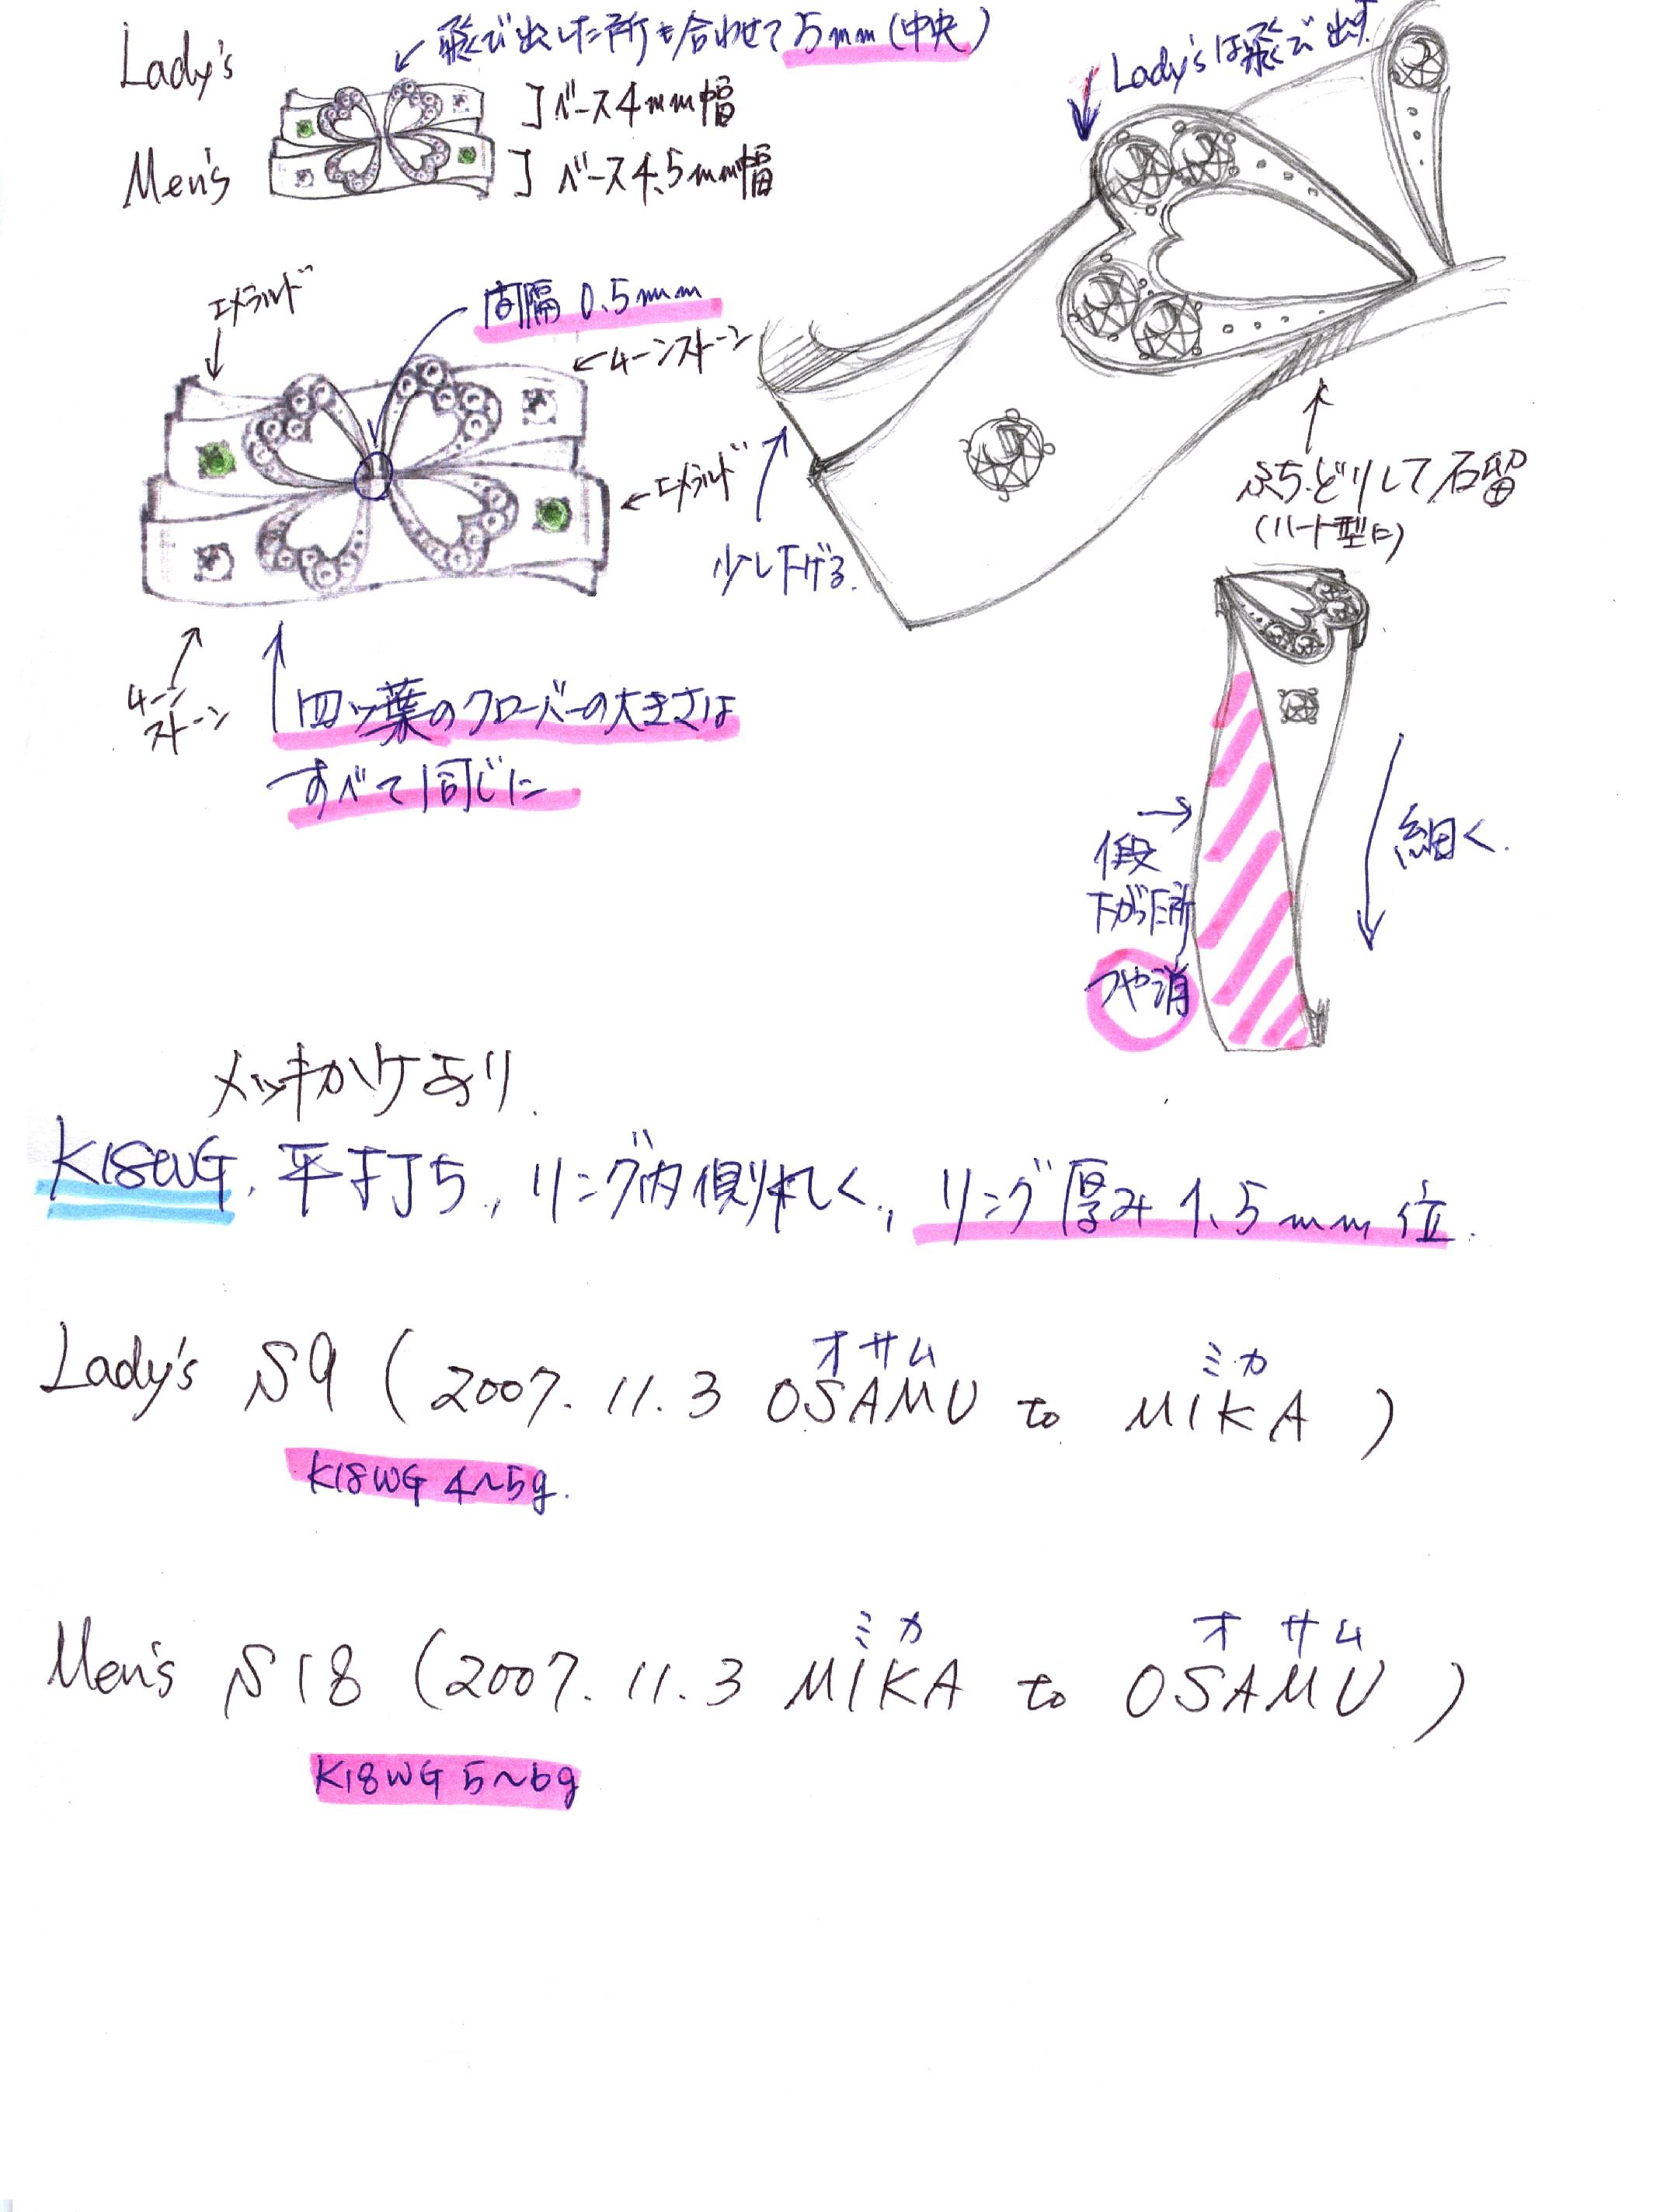 Lady's
飛び出した所も合わせて5mm(中央)
ベース4mm幅
Men's
ベース4.5mm幅
Lady'sは飛び出す
エメラルド
間隔 0.5mm
ムーンストーン
エメラルド
少し下げる.
ふちどりして石留
(ハート型に)
ムーン
ストーン
四ッ葉のクローバーの大きさは
すべて同じに
細く.
下がった所
つや消
メッキかけあり.
K18WG, 平打ち, リング内側, リング厚み 1.5mm位.
オサム ミカ
Lady's S9 (2007. 11. 3 OSAMU to MIKA)
K18WG 4~5g.
ミカ オサム
Men's S18 (2007. 11. 3 MIKA to OSAMU)
K18WG 5~6g